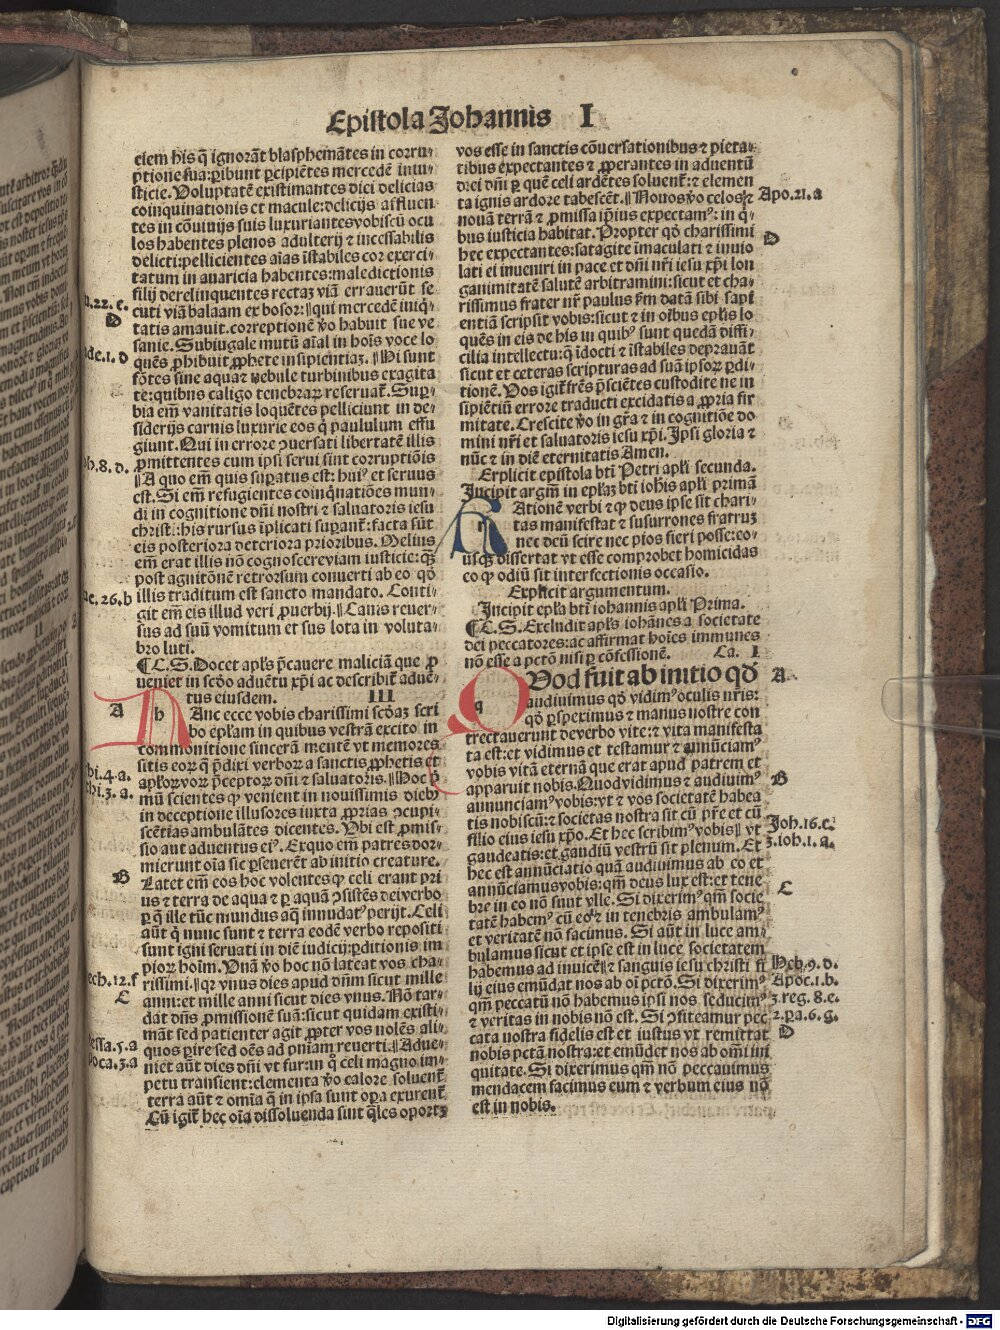 Epistola Johannis I
eiem his q̄ ignorāt blasphemātes in corru-
ptione sua: ꝑibunt ꝑcipiētes mercedē iniu-
sticie. Voluptatē existimantes diei delicias
coinquinationis et macule: delicijs affluen-
tes in cōuiuijs suis luxuriantes vobiscū ocu
los habentes plenos adulterij et incessabilis
delicti: pellicientes aīas īstabiles cor exerci-
tatum in auaricia habentes: maledictionis
filij derelinquentes rectaz viā errauerūt se
cuti viā balaam ex bosor: qui mercedē iniq̄-
tatis amauit. correptionē ꝟo habuit sue ve
sanie. Subiugale mutū aīal in hoīs voce lo
quēs ꝓhibuit ꝓphete insipientiaz. Hi sunt
fōtes sine aqua ⁊ nebule turbinibus exagita
te: quibus caligo tenebraꝝ reseruat̄. Suꝑ-
bia em̄ vanitatis loquētes pelliciunt in de-
siderijs carnis luxurie eos q̄ paululum effu
giunt. Qui in errore ꝯuersati libertatē illis
ꝓmittentes cum ipsi serui sint corruptiōis
A quo em̄ quis suꝑatus est: huiꝰ et seruus
est. Si em̄ refugientes coinq̄natiōes mun-
di in cognitione dn̄i nostri ⁊ saluatoris iesu
christi: his rursus īplicati suꝑant̄: facta sūt
eis posteriora deteriora prioribus. Melius
em̄ erat illis nō cognoscere viam iusticie: q̄ꝫ
post agnitōnē retrorsum conuerti ab eo qđ
illis traditum est sancto mandato. Conti-
git em̄ eis illud veri ꝓuerbij. Canis reuer-
sus ad suū vomitum et sus lota in voluta-
bro luti.
¶ C.S. Docet apl̄s p̄cauere maliciā que ꝓ
ueniet in scđo aduētu xp̄i ac describit̄ aduē-
tus eiusdem. III
h Anc ecce vobis charissimi scđaz scri
bo epl̄am in quibus vestrā excito in
commonitione sincerā mentē vt memores
sitis eoꝝ q̄ p̄dixi verboꝝ a sanctis ꝓphetis et
apl̄oꝝ voꝝ p̄ceptoꝝ dn̄i ⁊ saluatoris. Hoc p̄
mū scientes ꝙ venient in nouissimis dieb
in deceptione illusores iuxta ꝓprias ꝯcupi-
scētias ambulātes dicentes. Vbi est ꝓmis-
sio aut aduentus eiꝰ. Ex quo em̄ patres dor-
mierunt oīa sic ꝑseuerēt ab initio creature.
Latet em̄ eos hoc volentes ꝙ celi erant pri
us ⁊ terra de aqua ⁊ ꝑ aquā ꝯsistēs dei verbo
ꝑ q̄ ille tūc mundus aq̄ inundatꝰ perijt. Celi
aūt q̄ nunc sunt ⁊ terra eodē verbo repositi
sunt igni seruati in diē iudicij: ꝑditionis im
pioꝝ hoīm. Vnū ꝟo hoc nō lateat vos cha-
rissimi. qꝛ vnus dies apud dn̄m sicut mille
anni: et mille anni sicut dies vnus. Nō tar-
dat dn̄s ꝓmissionē suā: sicut quidam existi-
māt sed patienter agit ꝓpter vos nolēs ali-
quos ꝑire sed oēs ad pn̄iam reuerti. Adue-
niet aūt dies dn̄i vt fur: in q̊ celi magno im-
petu transient: elementa ꝟo calore soluent̄
terra aūt ⁊ omīa q̄ in ipsa sunt oꝑa exurent̄
Cū igit̄ hec oīa dissoluenda sint q̄les oportꝫ
a.22.c.
D
Jude.1.d
Joh.8.d.
Luc.26.b
A
4.a.
3.a.
B
Ezech.12.f
C
Thessa.5.a
Apoca.3.a
vos esse in sanctis cōuersationibus ⁊ pieta-
tibus expectantes ⁊ ꝓperantes in aduentū
diei dn̄i ꝑ quē celi ardētes soluent̄: ⁊ elemen
ta ignis ardore tabescēt. Nouos ꝟo celos ⁊
nouā terrā ⁊ ꝓmissa ip̄ius expectamꝰ: in q̄-
bus iusticia habitat. Propter qđ charissimi
hec expectantes: satagite īmaculati ⁊ inuio
lati ei inueniri in pace et dn̄i nr̄i iesu xp̄i lon
ganimitatē salutē arbitramini: sicut et cha-
rissimus frater nr̄ paulus ẜm datā sibi sapi
entiā scripsit vobis: sicut ⁊ in oībus epl̄is lo
quēs in eis de his in quibꝰ sunt quedā diffi-
cilia intellectu: q̄ īdocti ⁊ īstabiles deprauāt
sicut et ceteras scripturas ad suā ipsoꝝ ꝑdi-
tionē. Vos igit̄ fr̄es p̄scientes custodite ne in
sipiētiū errore traducti excidatis a ꝓpria fir
mitate. Crescite ꝟo in gr̄a ⁊ in cognitiōe do
mini nr̄i et saluatoris iesu xp̄i. Ipsi gloria ⁊
nūc ⁊ in diē eternitatis Amen.
Explicit epistola bt̄i Petri apl̄i secunda.
Incipit argm̄ in epl̄aꝫ bt̄i iohīs apl̄i primā
r Ationē verbi ⁊ ꝙ deus ipse sit chari-
tas manifestat ⁊ susurrones fratruꝫ
nec deū scire nec pios fieri posse: eo-
usqꝫ dissertat vt esse comprobet homicidas
eo ꝙ odiū sit interfectionis occasio.
Explicit argumentum.
Incipit epl̄a bt̄i iohannis apl̄i Prima.
¶ C.S. Excludit apl̄s iohānes a societate
dei peccatores: ac affirmat hoīes immunes
nō esse a pctō nisi ꝑ cōfessionē. Ca. I
q Vod fuit ab initio qđ
audiuimus qđ vidimꝰ oculis nr̄is:
qđ ꝑspeximus ⁊ manus nostre con
trectauerunt de verbo vite: ⁊ vita manifesta
ta est: et vidimus et testamur ⁊ annūciamꝰ
vobis vitā eternā que erat apud patrem et
apparuit nobis. Quod vidimus ⁊ audiuimꝰ
annunciamꝰ vobis: vt ⁊ vos societatē habea
tis nobiscū: ⁊ societas nostra sit cū pr̄e et cū
filio eius iesu xp̄o. Et hec scribimꝰ vobis vt
gaudeatis: et gaudiū vestrū sit plenum. Et
hec est annūciatio quā audiuimus ab eo et
annūciamus vobis: qm̄ deus lux est: et tene
bre in eo nō sunt vlle. Si dixerimꝰ qm̄ socie
tatē habemꝰ cū eo: ⁊ in tenebris ambulamꝰ
et veritatē nō facimus. Si aūt in luce am-
bulamus sicut et ipse est in luce societatem
habemus ad inuicē ⁊ sanguis iesu christi fi
lij eius emūdat nos ab oī pctō. Si dixerimꝰ
qm̄ peccatū nō habemus ipsi nos seducimꝰ
⁊ veritas in nobis nō est. Si ꝯfiteamur pec
cata nostra fidelis est et iustus vt remittat
nobis pctā nostra: et emūdet nos ab om̄i ini
quitate. Si dixerimus qm̄ nō peccauimus
mendacem facimus eum ⁊ verbum eius nō
est in nobis.
Apo.21.a
D
A
B
Joh.16.c.
3.ioh.1.a.
C
Heb.9.d.
Apoc.1.b.
3.reg.8.e.
2.pa.6.g.
D
Digitalisierung gefördert durch die Deutsche Forschungsgemeinschaft - DFG